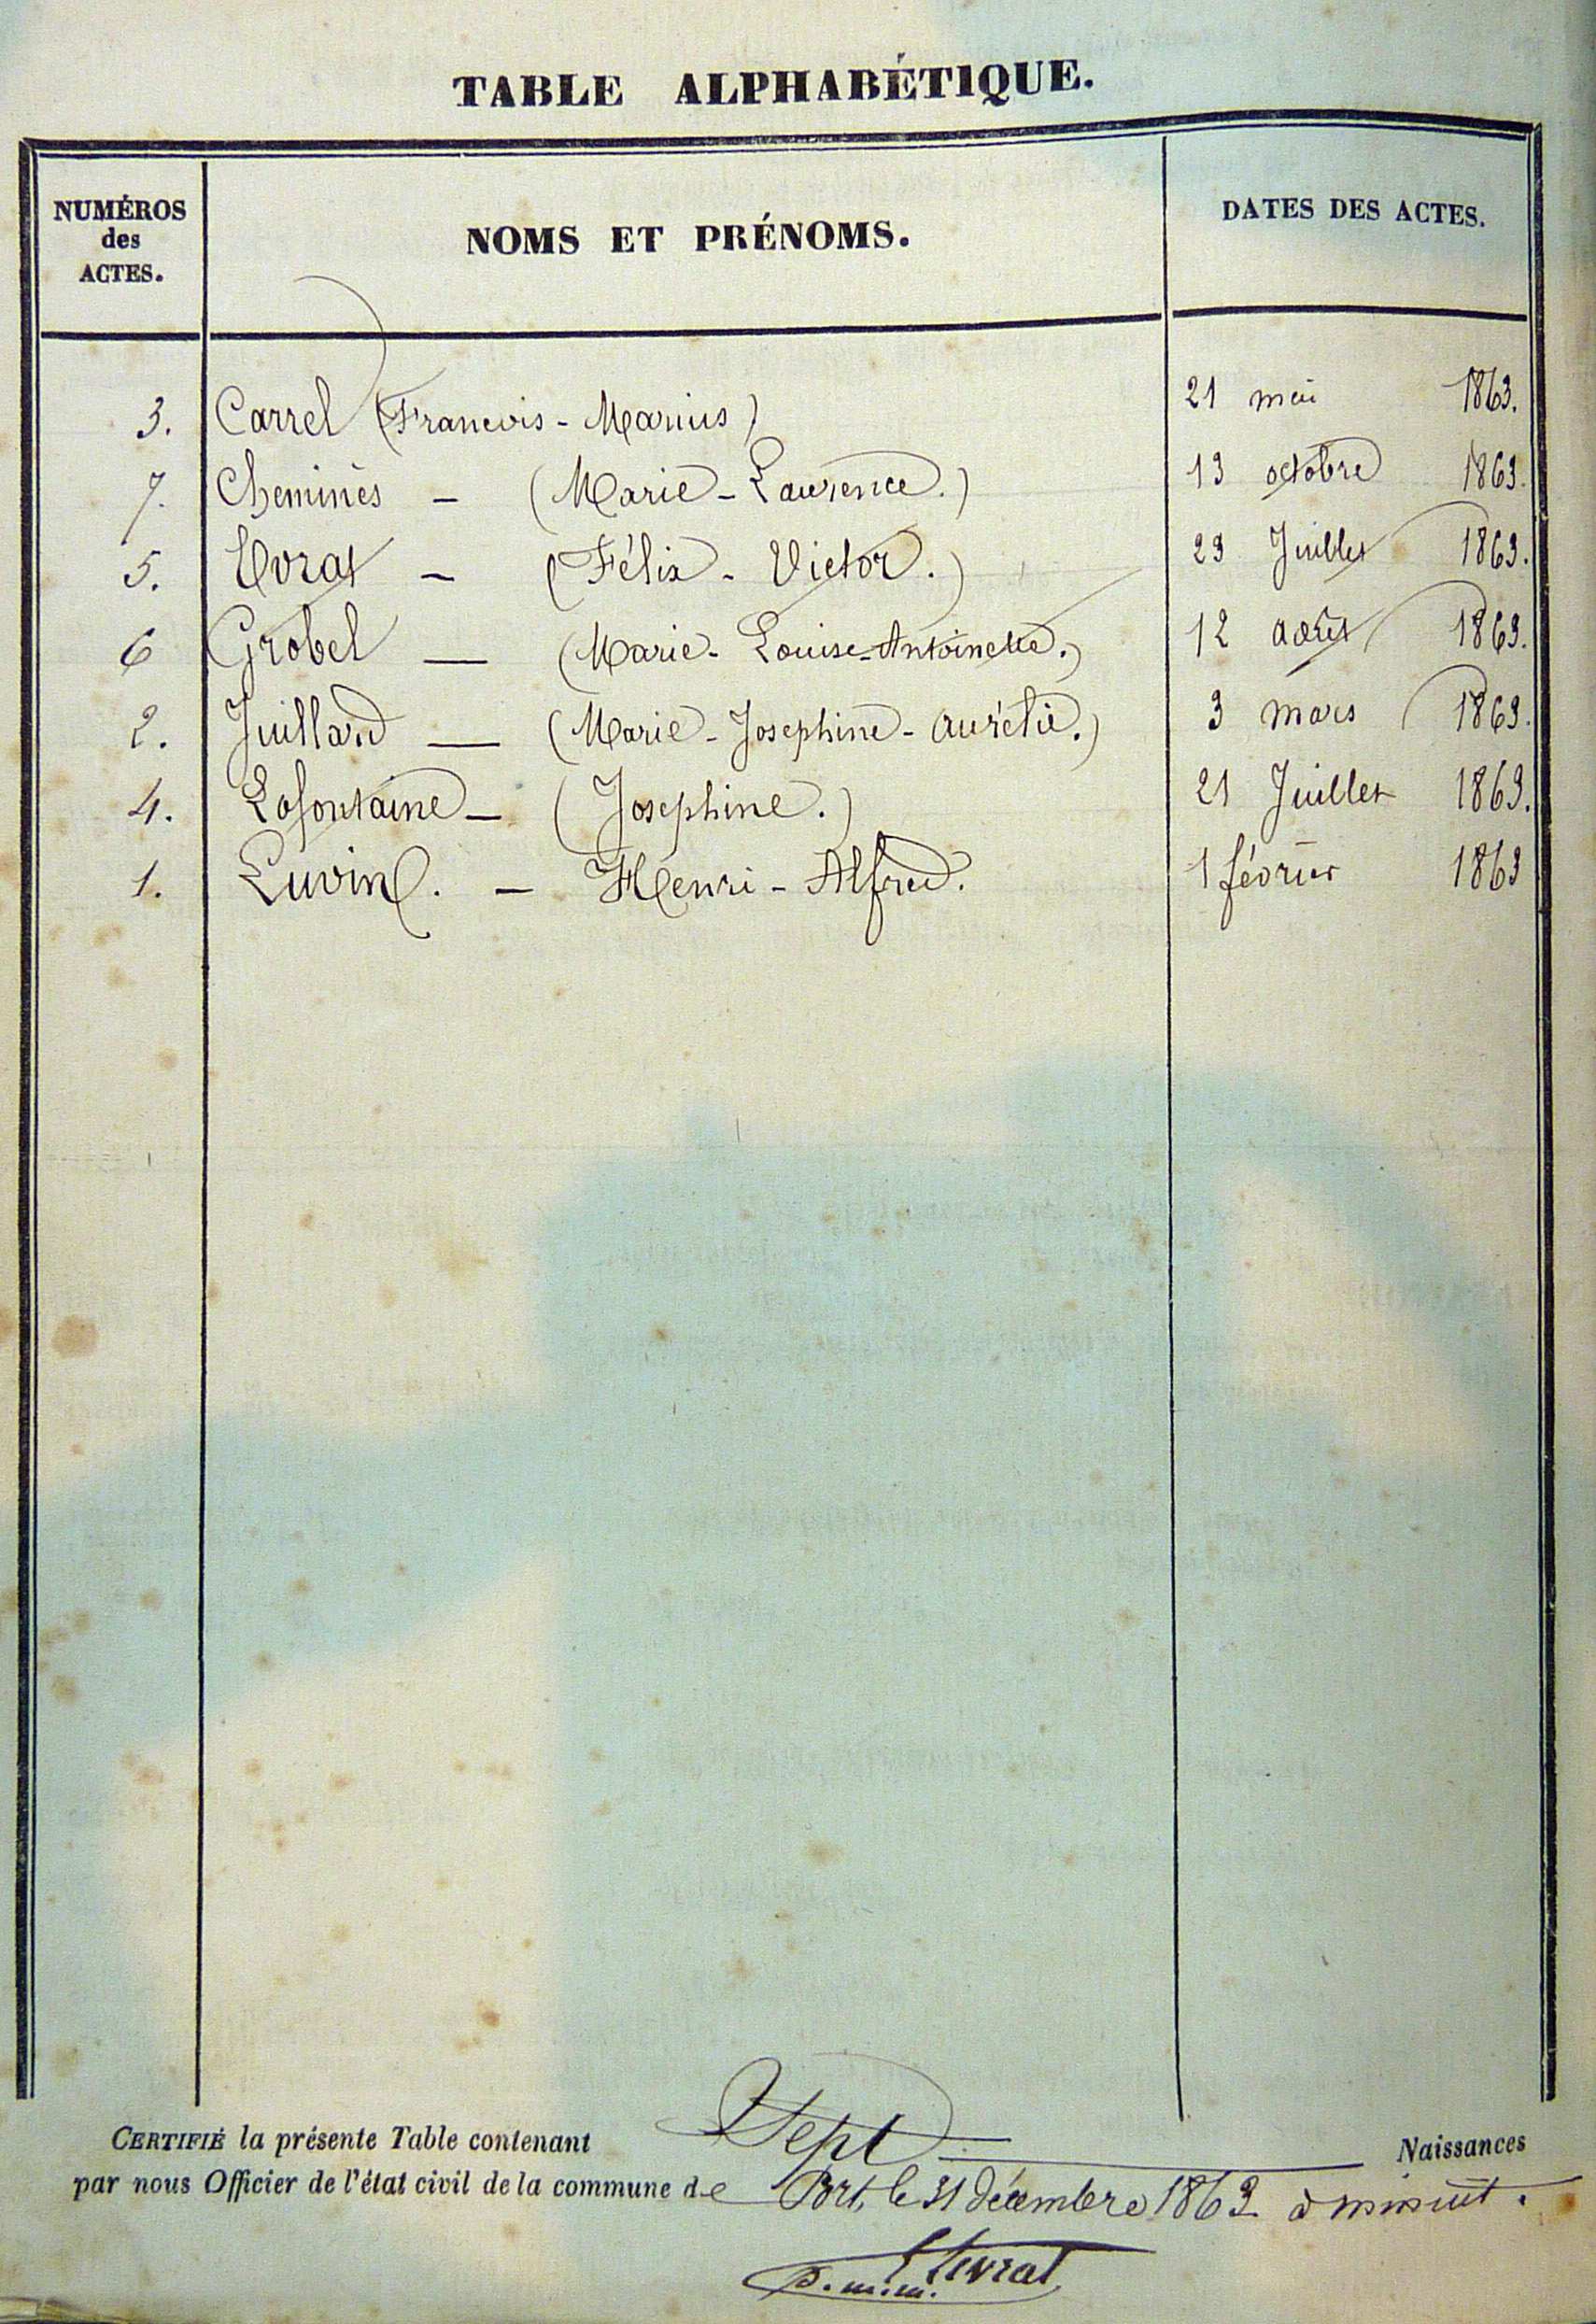 TABLE ALPHABÉTIQUE.
NUMÉROS
des
ACTES.
NOMS ET PRÉNOMS.
DATES DES ACTES.
3. Carrel (Francois - Marius) 21 mai 1863.
7. Cheminès - (Marie - Laurence.) 13 octobre 1863.
5. Evrat - (Félix - Victor.) 23 Juillet 1863.
6 Grobel — (Marie - Louise - Antoinette.) 12 août 1863.
2. Juillard — (Marie - Josephine - Aurélie.) 3 mars 1863.
4. Lafontaine - (Josephine.) 21 Juillet 1863.
1. Luvini. - Henri - Alfred. 1 février 1863
CERTIFIÉ la présente Table contenant Sept Naissances
par nous Officier de l'état civil de la commune de Port, le 31 décembre 1863 à minuit.